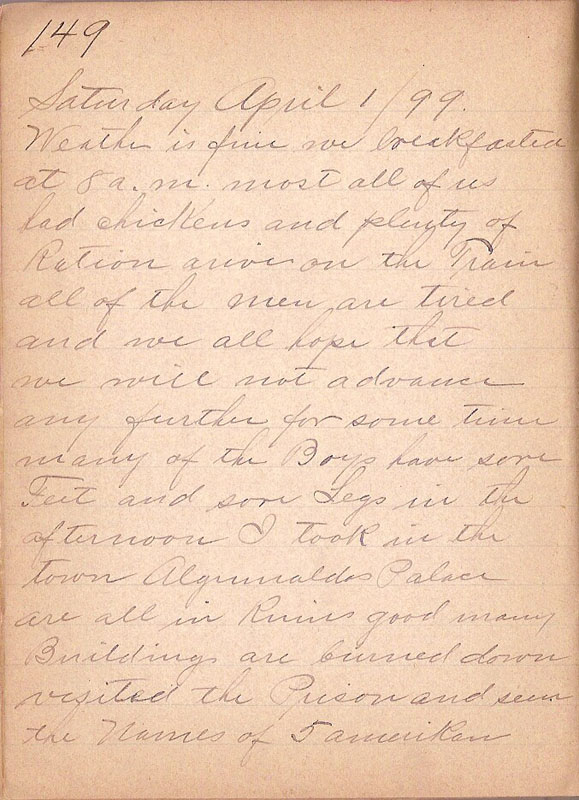 149
Saturday April 1/99.
Weather is fine we breakfasted
at 8 a.m. most all of us
had chickens and plenty of
Ration arives on the Train
all of the men are tired
and we all hope that
we will not advance
any further for some time
many of the Boys have sore
Feet and sore Legs in the
afternoon I took in the
town Palace
are all in Ruins good many
Buildings are burned down
visited the Prison and seen
the Names of 5 amerikan